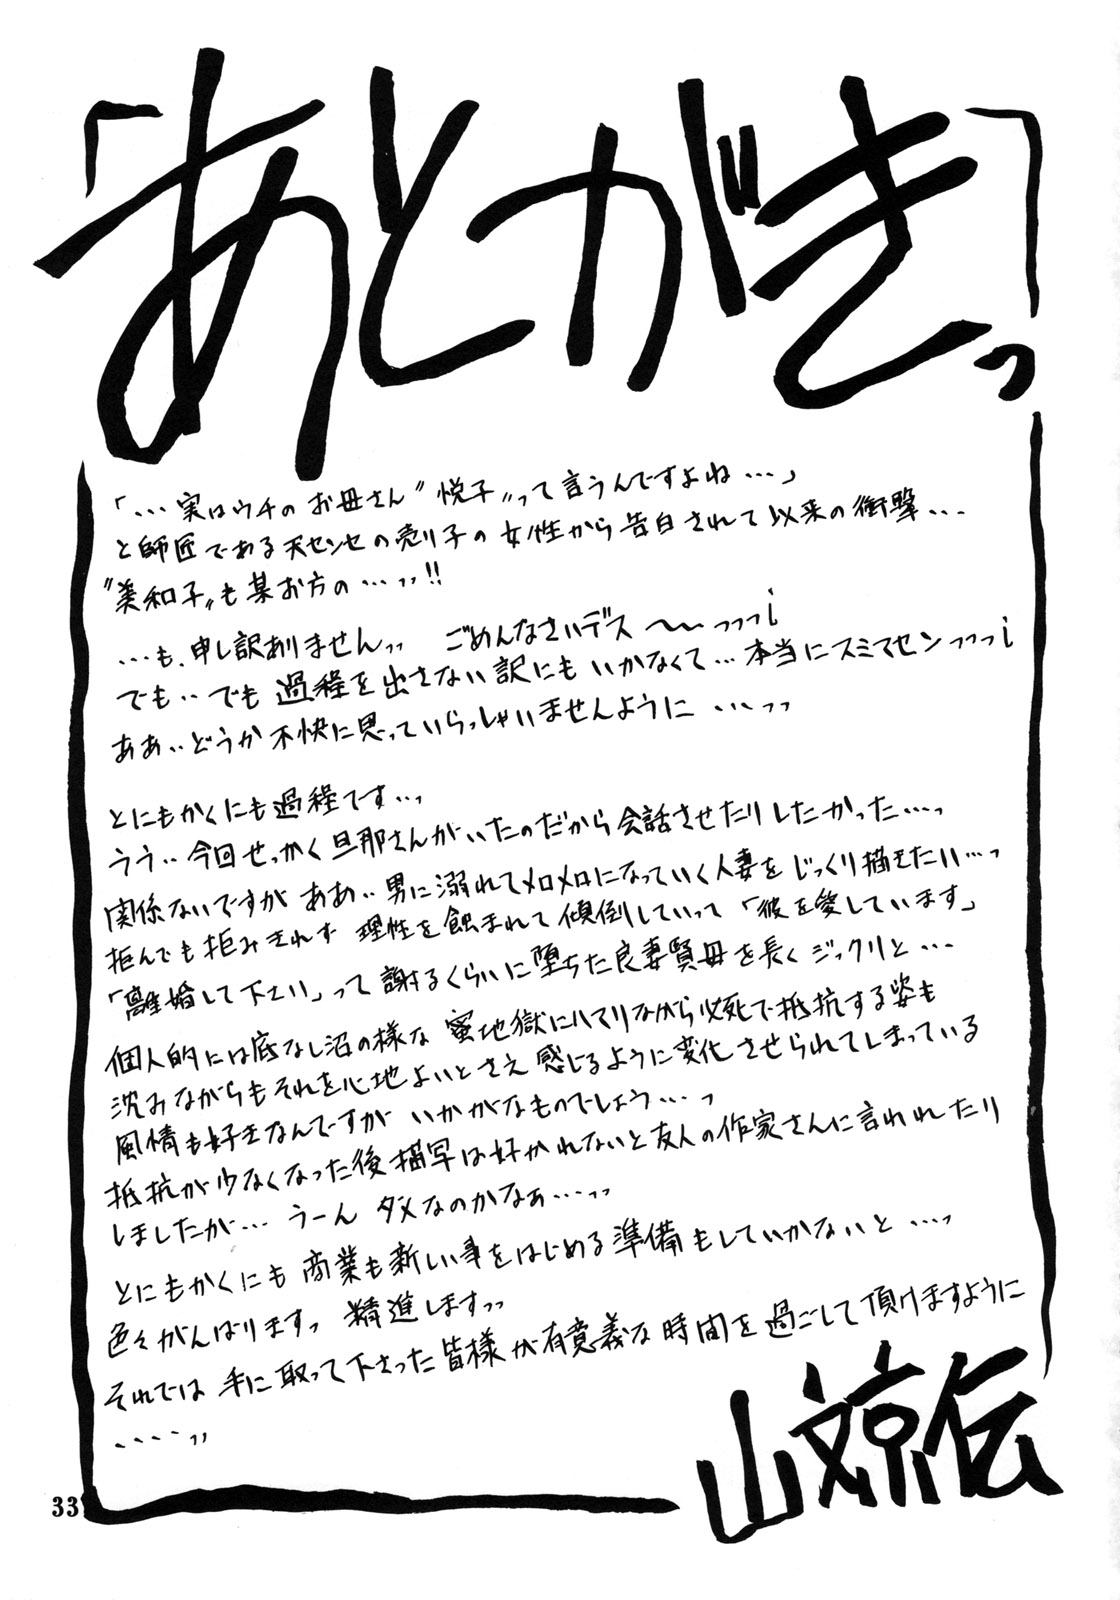 「あとがきっ」
「・・・実はウチのお母さん〝悦子〟って言うんですよね・・・」
と師匠である天センセの売り子の女性から告白されて以来の衝撃・・・
〝美和子〟も某お方の・・・ッッ!!
・・・も、申し訳ありませんッッ ごめんなさいデス〜〜っっっ¡
でも・・でも過程を出さない訳にもいかなくて・・・本当にスミマセンっっっ¡
ああ・・どうか不快に思っていらっしゃいませんように・・・っっ
とにもかくにも過程です・・っ
うう・・今回せっかく旦那さんがいたのだから会話させたりしたかった・・・っ
関係ないですが ああ・・男に溺れてメロメロになっていく人妻をじっくり描きたい・・・っ
拒んでも拒みきれず 理性を蝕まれて傾倒していって「彼を愛しています」
「離婚して下さい」って謝るくらいに堕ちた良妻賢母を長くジックリと・・・
個人的には底なし沼の様な蜜地獄にハマりながら必死で抵抗する姿も
沈みながらもそれを心地よいとさえ感じるように変化させられてしまっている
風情も好きなんですが いかがなものでしょう・・・っ
抵抗が少なくなった後描写は好かれないと友人の作家さんに言われたり
しましたが・・・ うーん ダメなのかなぁ・・・っっ
とにもかくにも 商業も新しい事をはじめる準備もしていかないと・・・っ
色々がんばりますっ 精進しますっっ
それでは 手に取って下さった皆様が有意義な時間を過ごして頂けますように
・・・・っっ
山文京伝
33